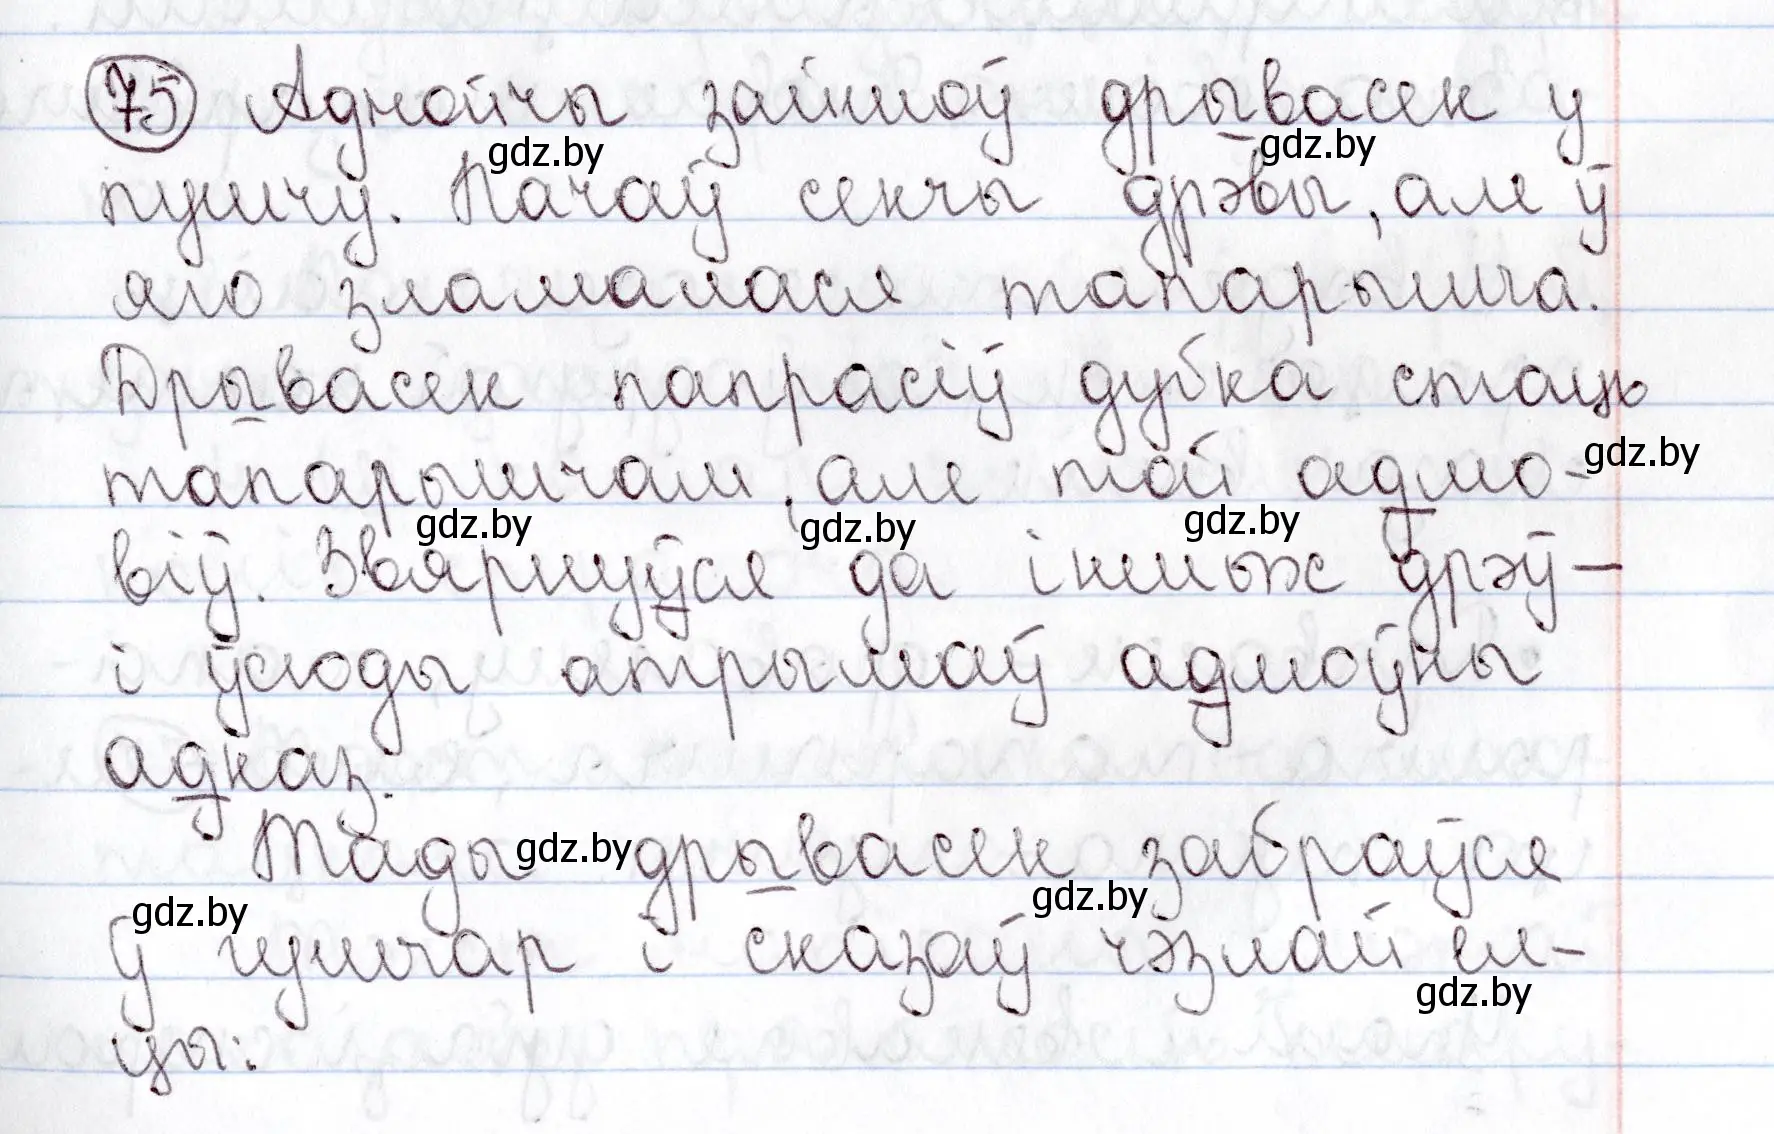 75 Аднойчы зайшоў дрывасек у
gdz.by gdz.by
пушчу. Пачаў секчы дрэвы, але ў
яго зламалася тапарышча.
Дрывасек папрасіў дубка стаць
gdz.by
тапарышчам, але той адмо-
gdz.by gdz.by gdz.by
віў. Звярнуўся да іншых дрэў –
і ўсюды атрымаў адмоўны
адказ.
Тады дрывасек забраўся
gdz.by
gdz.by gdz.by
ў гушчар і сказаў чэзлай ел-
gdz.by
цы: